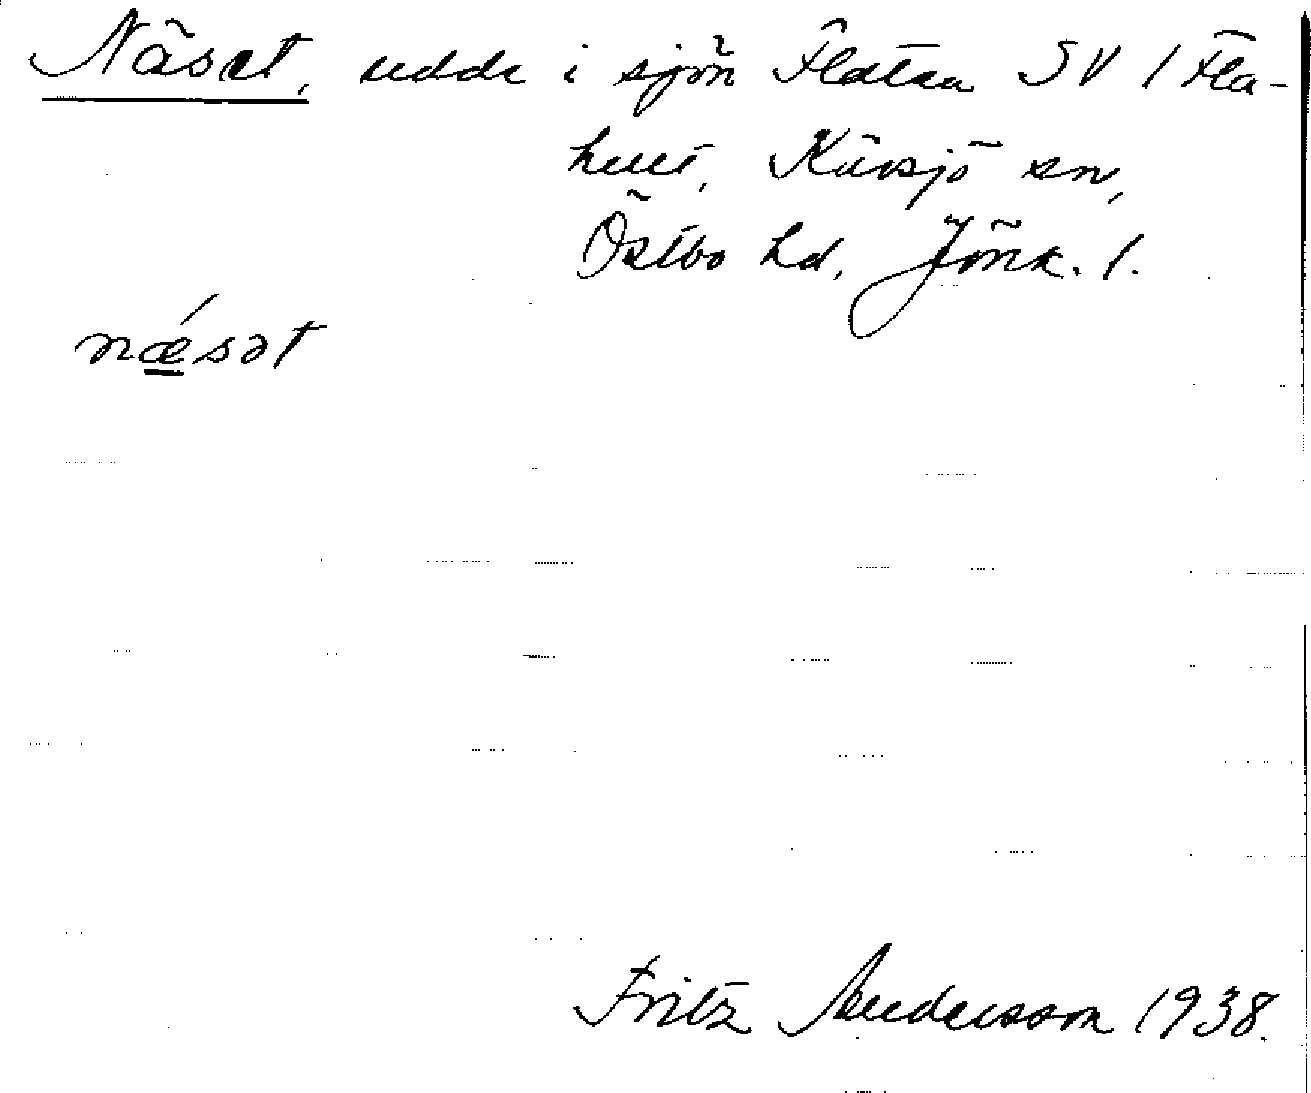 Näset, udde i sjön Flåten SV / Fla-
hult, Kävsjö sn,
Östbo hd, Jönk. l.
næ´sət
Fritz Andersson 1938.